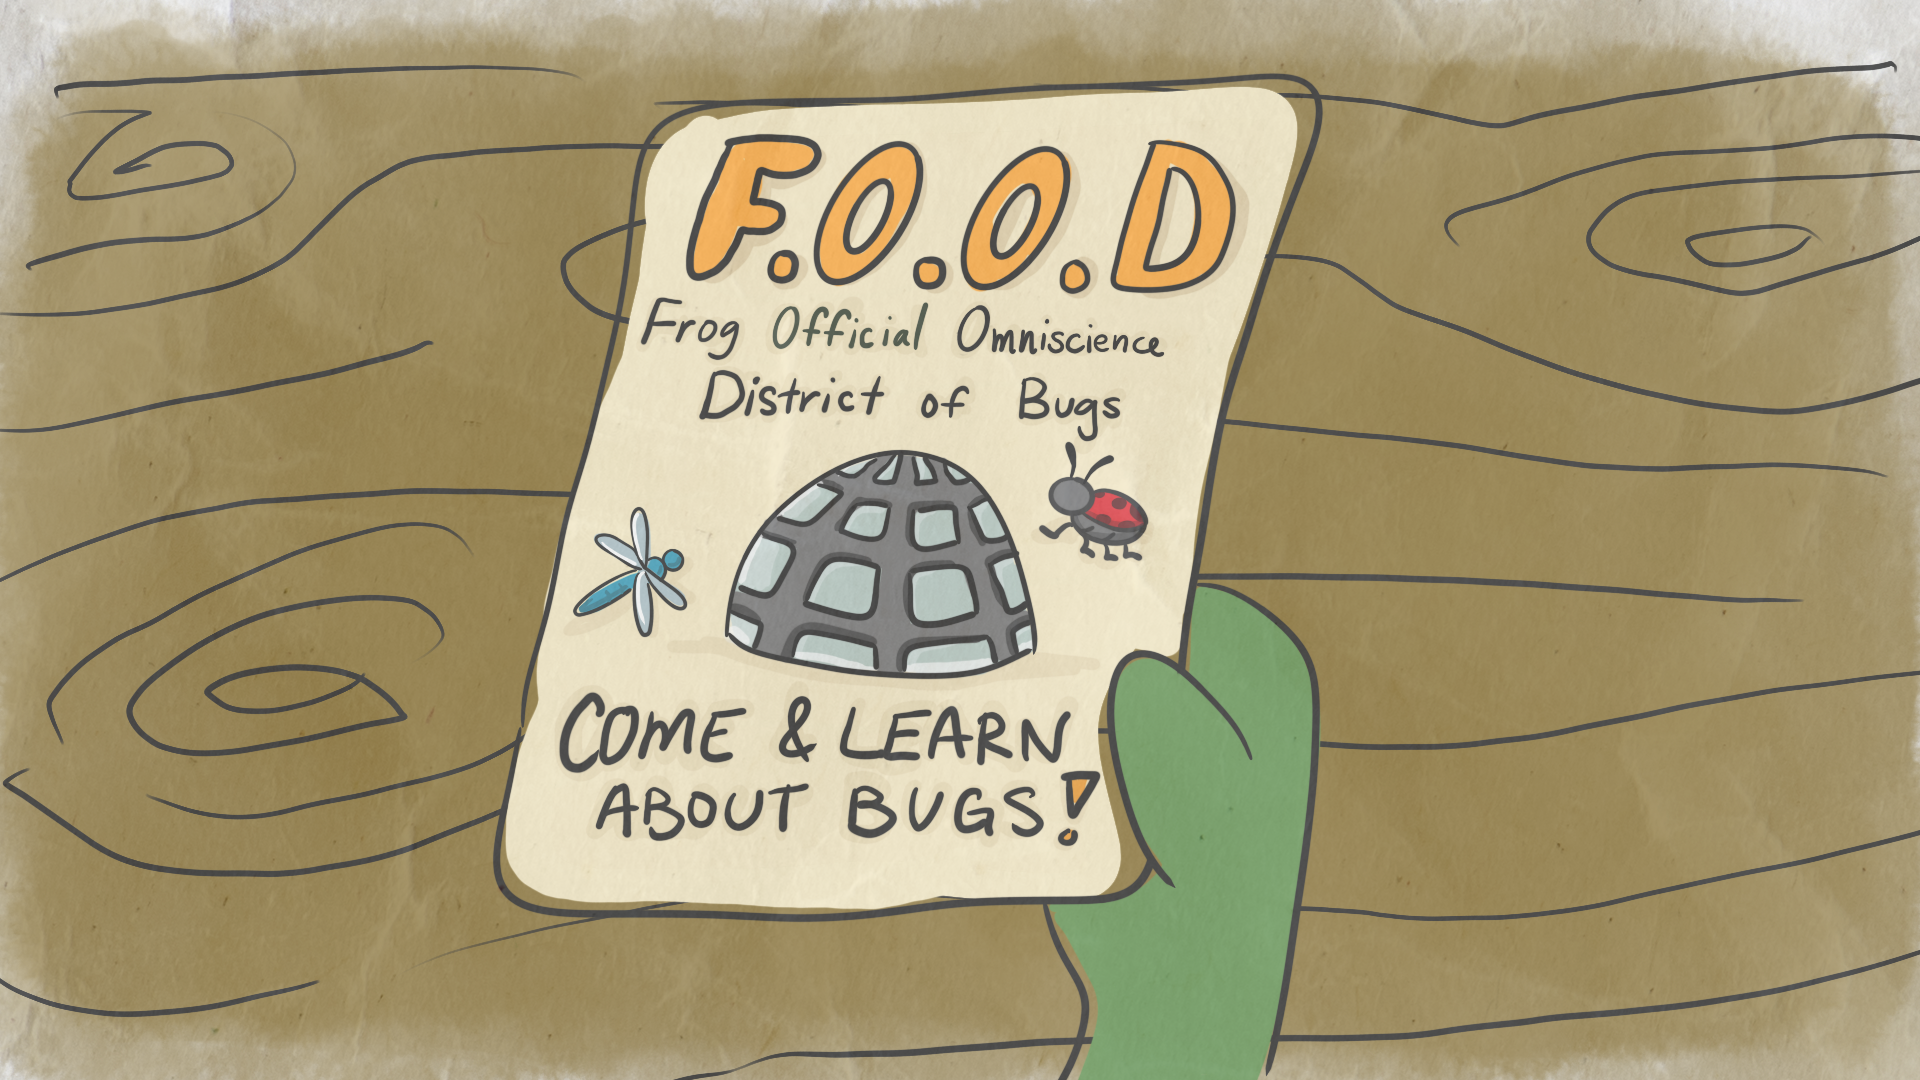 F.O.O.D
Frog Official Omniscience
District of Bugs
COME & LEARN
ABOUT BUGS!